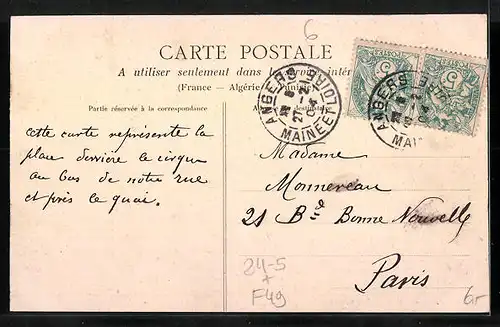 6
CARTE POSTALE
A utiliser seulement dans la service intér
(France — Algérie — Tunisie)
Partie réservée à la correspondance
ANGERS
MAINE-E-LOIRE
ANGERS
MAI
cette carte représente la
place derrière le cirque
au bas de notre rue
et près le quai.
Madame
Monnereau
21 Bd Bonne Nouvelle
Paris
24-5
F49